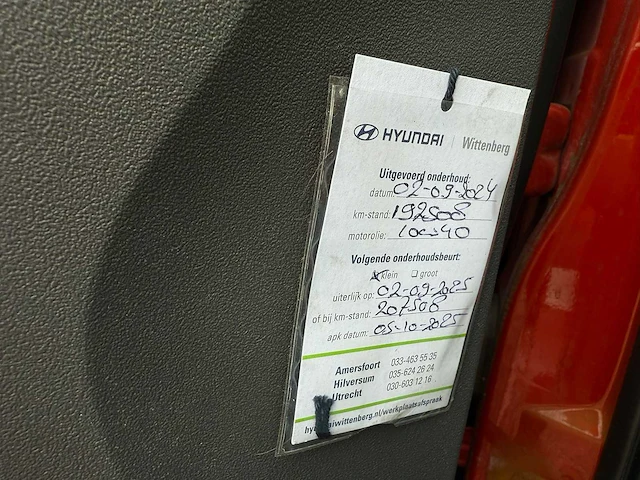 HYUNDAI | Wittenberg
Uitgevoerd onderhoud:
datum: 02-09-2024
km-stand: 192508
motorolie: 10w40
Volgende onderhoudsbeurt:
klein groot
uiterlijk op: 02-09-2025
of bij km-stand: 207508
apk datum: 05-10-2025
Amersfoort 033-463 55 35
Hilversum 035-624 26 24
Utrecht 030-603 12 16
hyundaiwittenberg.nl/werkplaatsafspraak